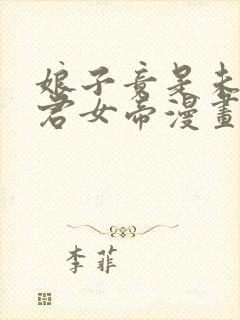 娘子竟是未
君女帝漫畫
李菲